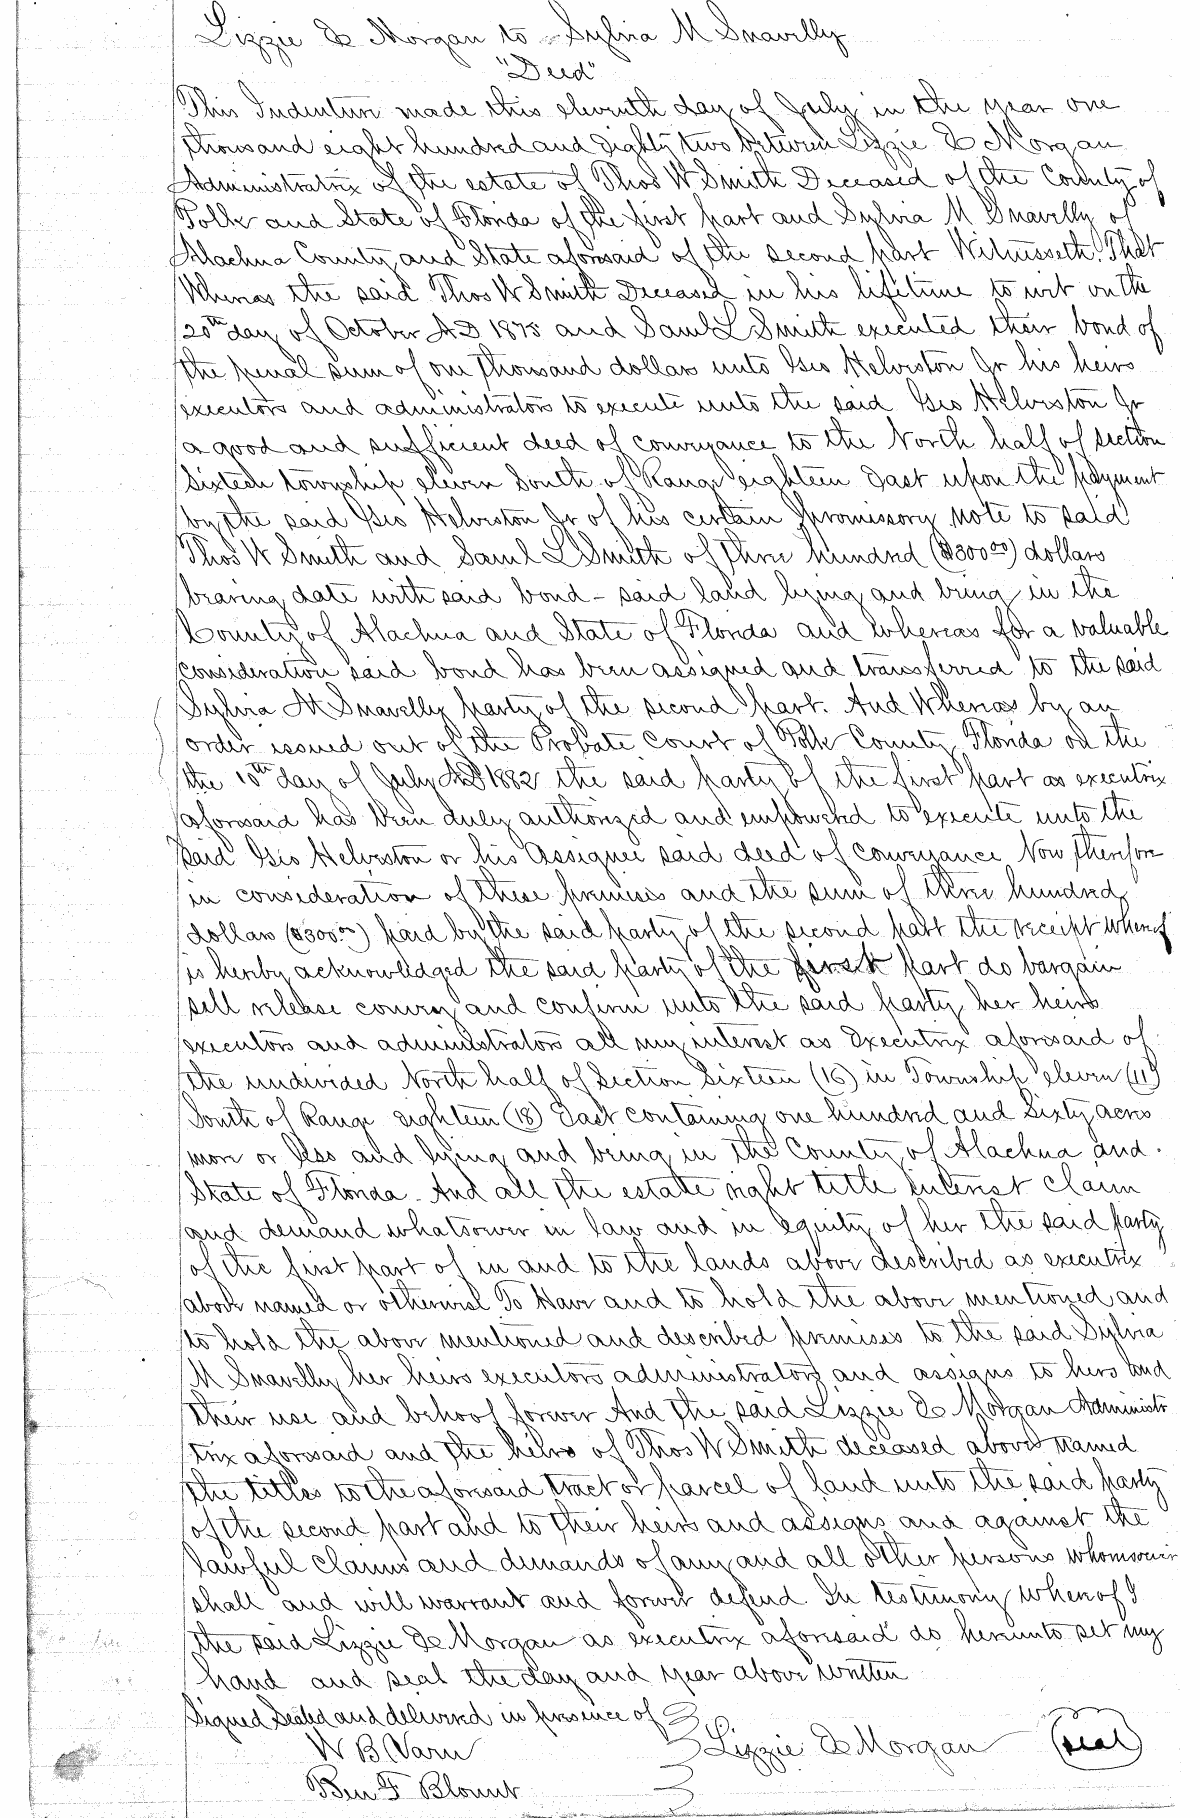 Lizzie De Morgan to Sylvia M Snavelly
"Deed"
This Indenture made this eleventh day of July in the year one
thousand eight hundred and Eighty two between Lizzie De Morgan
Administratrix of the estate of Thos W Smith Deceased of the County of
Polk and State of Florida of the first part and Sylvia M Snavelly of
Alachua County and State aforesaid of the second part Witnesseth. That
Whereas the said Thos W Smith Deceased in his lifetime to wit on the
20th day of October A.D 1875 and Saml L Smith executed their bond of
the penal sum of one thousand dollars unto Geo Helveston Jr his heirs
executors and administrators to execute unto the said Geo Helveston Jr
a good and sufficient deed of conveyance to the North half of section
Sixteen township eleven South of Range eighteen East upon the payment
by the said Geo Helveston Jr of his certain promissory note to said
Thos W Smith and Saml L Smith of three hundred ($300.00) dollars
bearing date with said bond - said land lying and being in the
County of Alachua and State of Florida and whereas for a valuable
consideration said bond has been assigned and transferred to the said
Sylvia M Snavelly party of the second part. And Whereas by an
order issued out of the Probate Court of Polk County Florida on the
the 10th day of July AD 1882 the said party of the first part as executrix
aforesaid has been duly authorized and empowered to execute unto the
said Geo Helveston or his Assignee said deed of conveyance Now therefore
in consideration of these premises and the sum of three hundred
dollars ($300.00) paid by the said party of the second part the receipt whereof
is hereby acknowledged the said party of the first part do bargain
sell release convey and confirm unto the said party her heirs
executors and administrators all my interest as Executrix aforesaid of
the undivided North half of Section Sixteen (16) in Township eleven (11)
South of Range eighteen (18) East containing one hundred and Sixty acres
more or less and lying and being in the County of Alachua and
State of Florida. And all the estate right title interest claim
and demand whatsoever in law and in equity of her the said party
of the first part of in and to the lands above described as executrix
above named or otherwise To Have and to hold the above mentioned and
to hold the above mentioned and described premises to the said Sylvia
M Snavelly her heirs executors administrators and assigns to hers and
their use and behoof forever And the said Lizzie De Morgan Administr
trix aforesaid and the heirs of Thos W Smith deceased above named
the titles to the aforesaid tract or parcel of land unto the said party
of the second part and to their heirs and assigns and against the
lawful claims and demands of any and all other persons whomsoever
shall and will warrant and forever defend In testimony whereof I
the said Lizzie De Morgan as executrix aforesaid do hereunto set my
hand and seal the day and year above written
Signed Sealed and delivered in presence of
W B Varn
Lizzie De Morgan (seal)
Ben F Blount